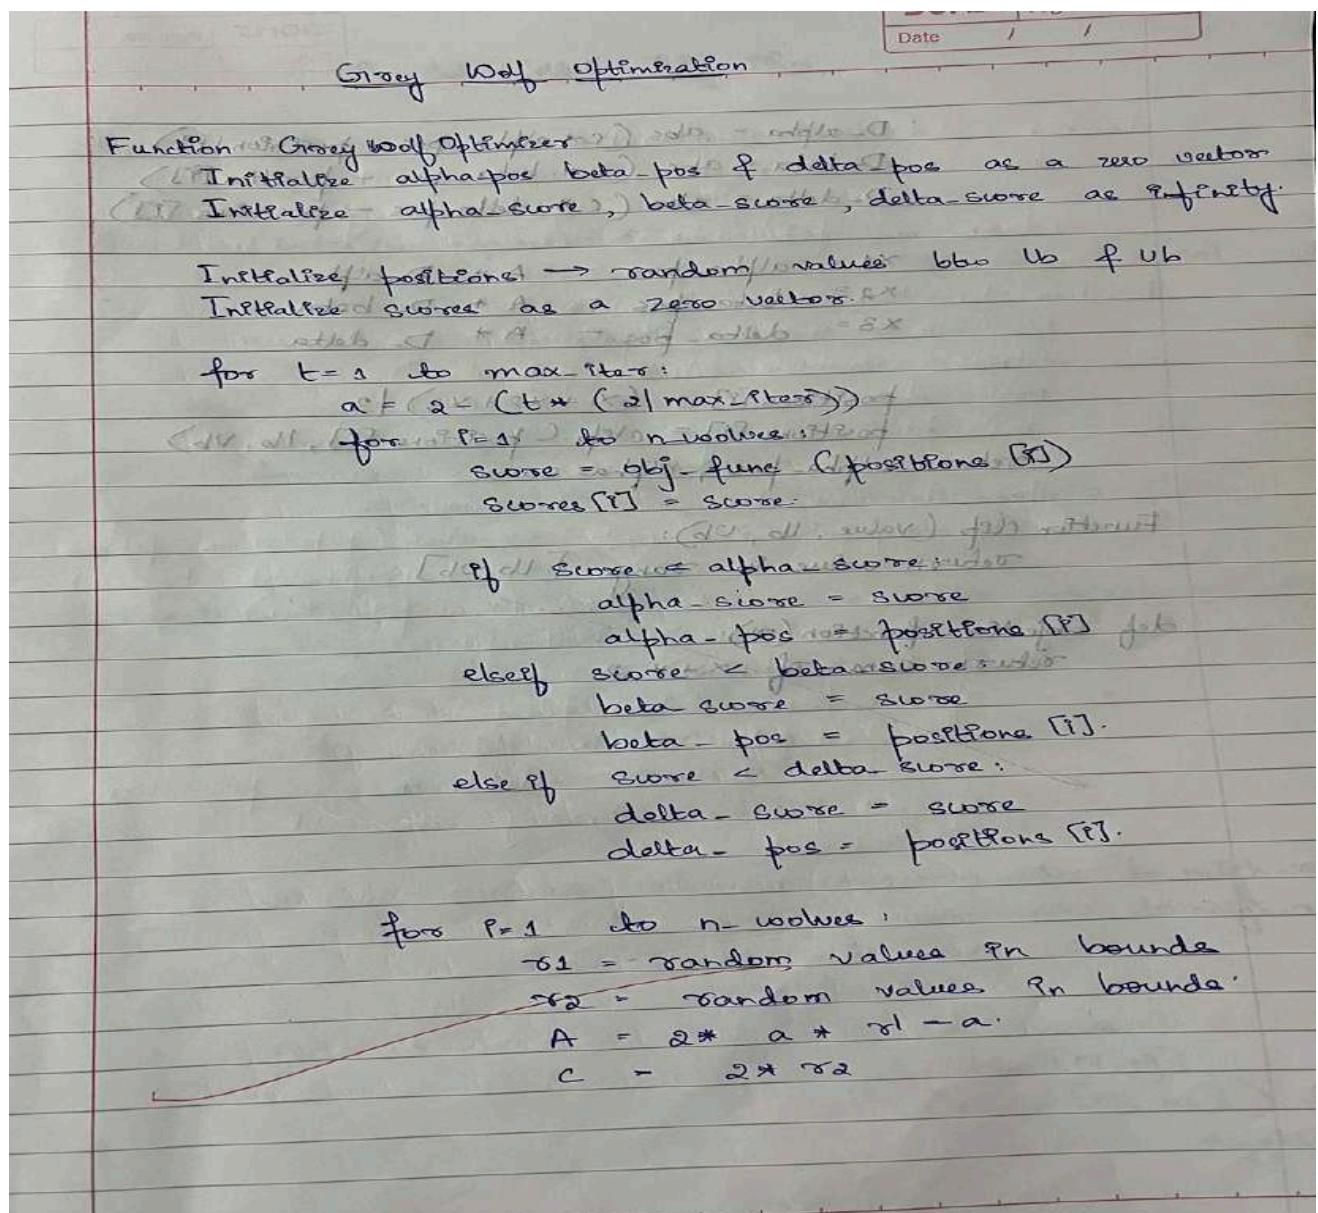 Date / /
Grey Wolf Optimization
Function Grey Wolf Optimizer
Initialize alpha-pos beta-pos & delta-pos as a zero vector
Initialize alpha-score, beta-score, delta-score as infinity.
Initialize positions → random values btw lb & ub
Initialize scores as a zero vector.
for t=1 to max-iter:
a = 2 - (t * (2/max-iter))
for i=1 to n-wolves:
score = obj-func (positions [i])
scores[i] = score.
if score < alpha-score:
alpha-score = score
alpha-pos = positions [i]
elseif score < beta score:
beta score = score
beta-pos = positions [i].
else if score < delta-score:
delta-score = score
delta-pos = positions [i].
for i=1 to n-wolves:
r1 = random values in bounds
r2 = random values in bounds.
A = 2* a * r1 - a.
C = 2* r2